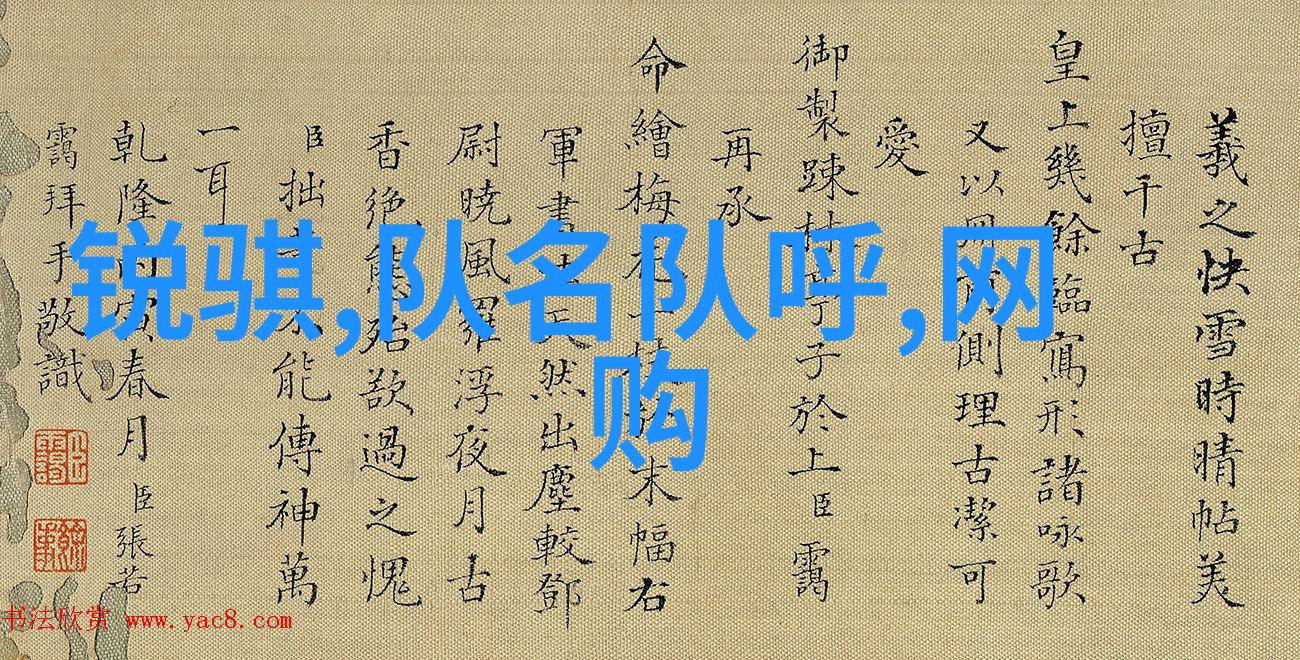 羲之快雪時晴帖美
擅千古
皇上幾餘臨寫形諸咏歌
又以側理古潔可
愛
御製疎林子於上臣靄
再承
命繪梅末幅右
軍書天然出塵較鄧
尉曉風羅浮夜月古
香絕態殆欲過之愧
臣拙不能傳神萬
一耳
乾隆寅春月臣張若
靄拜手敬識
锐骐,队名队呼,网
购
书法欣赏 www.yac8.com